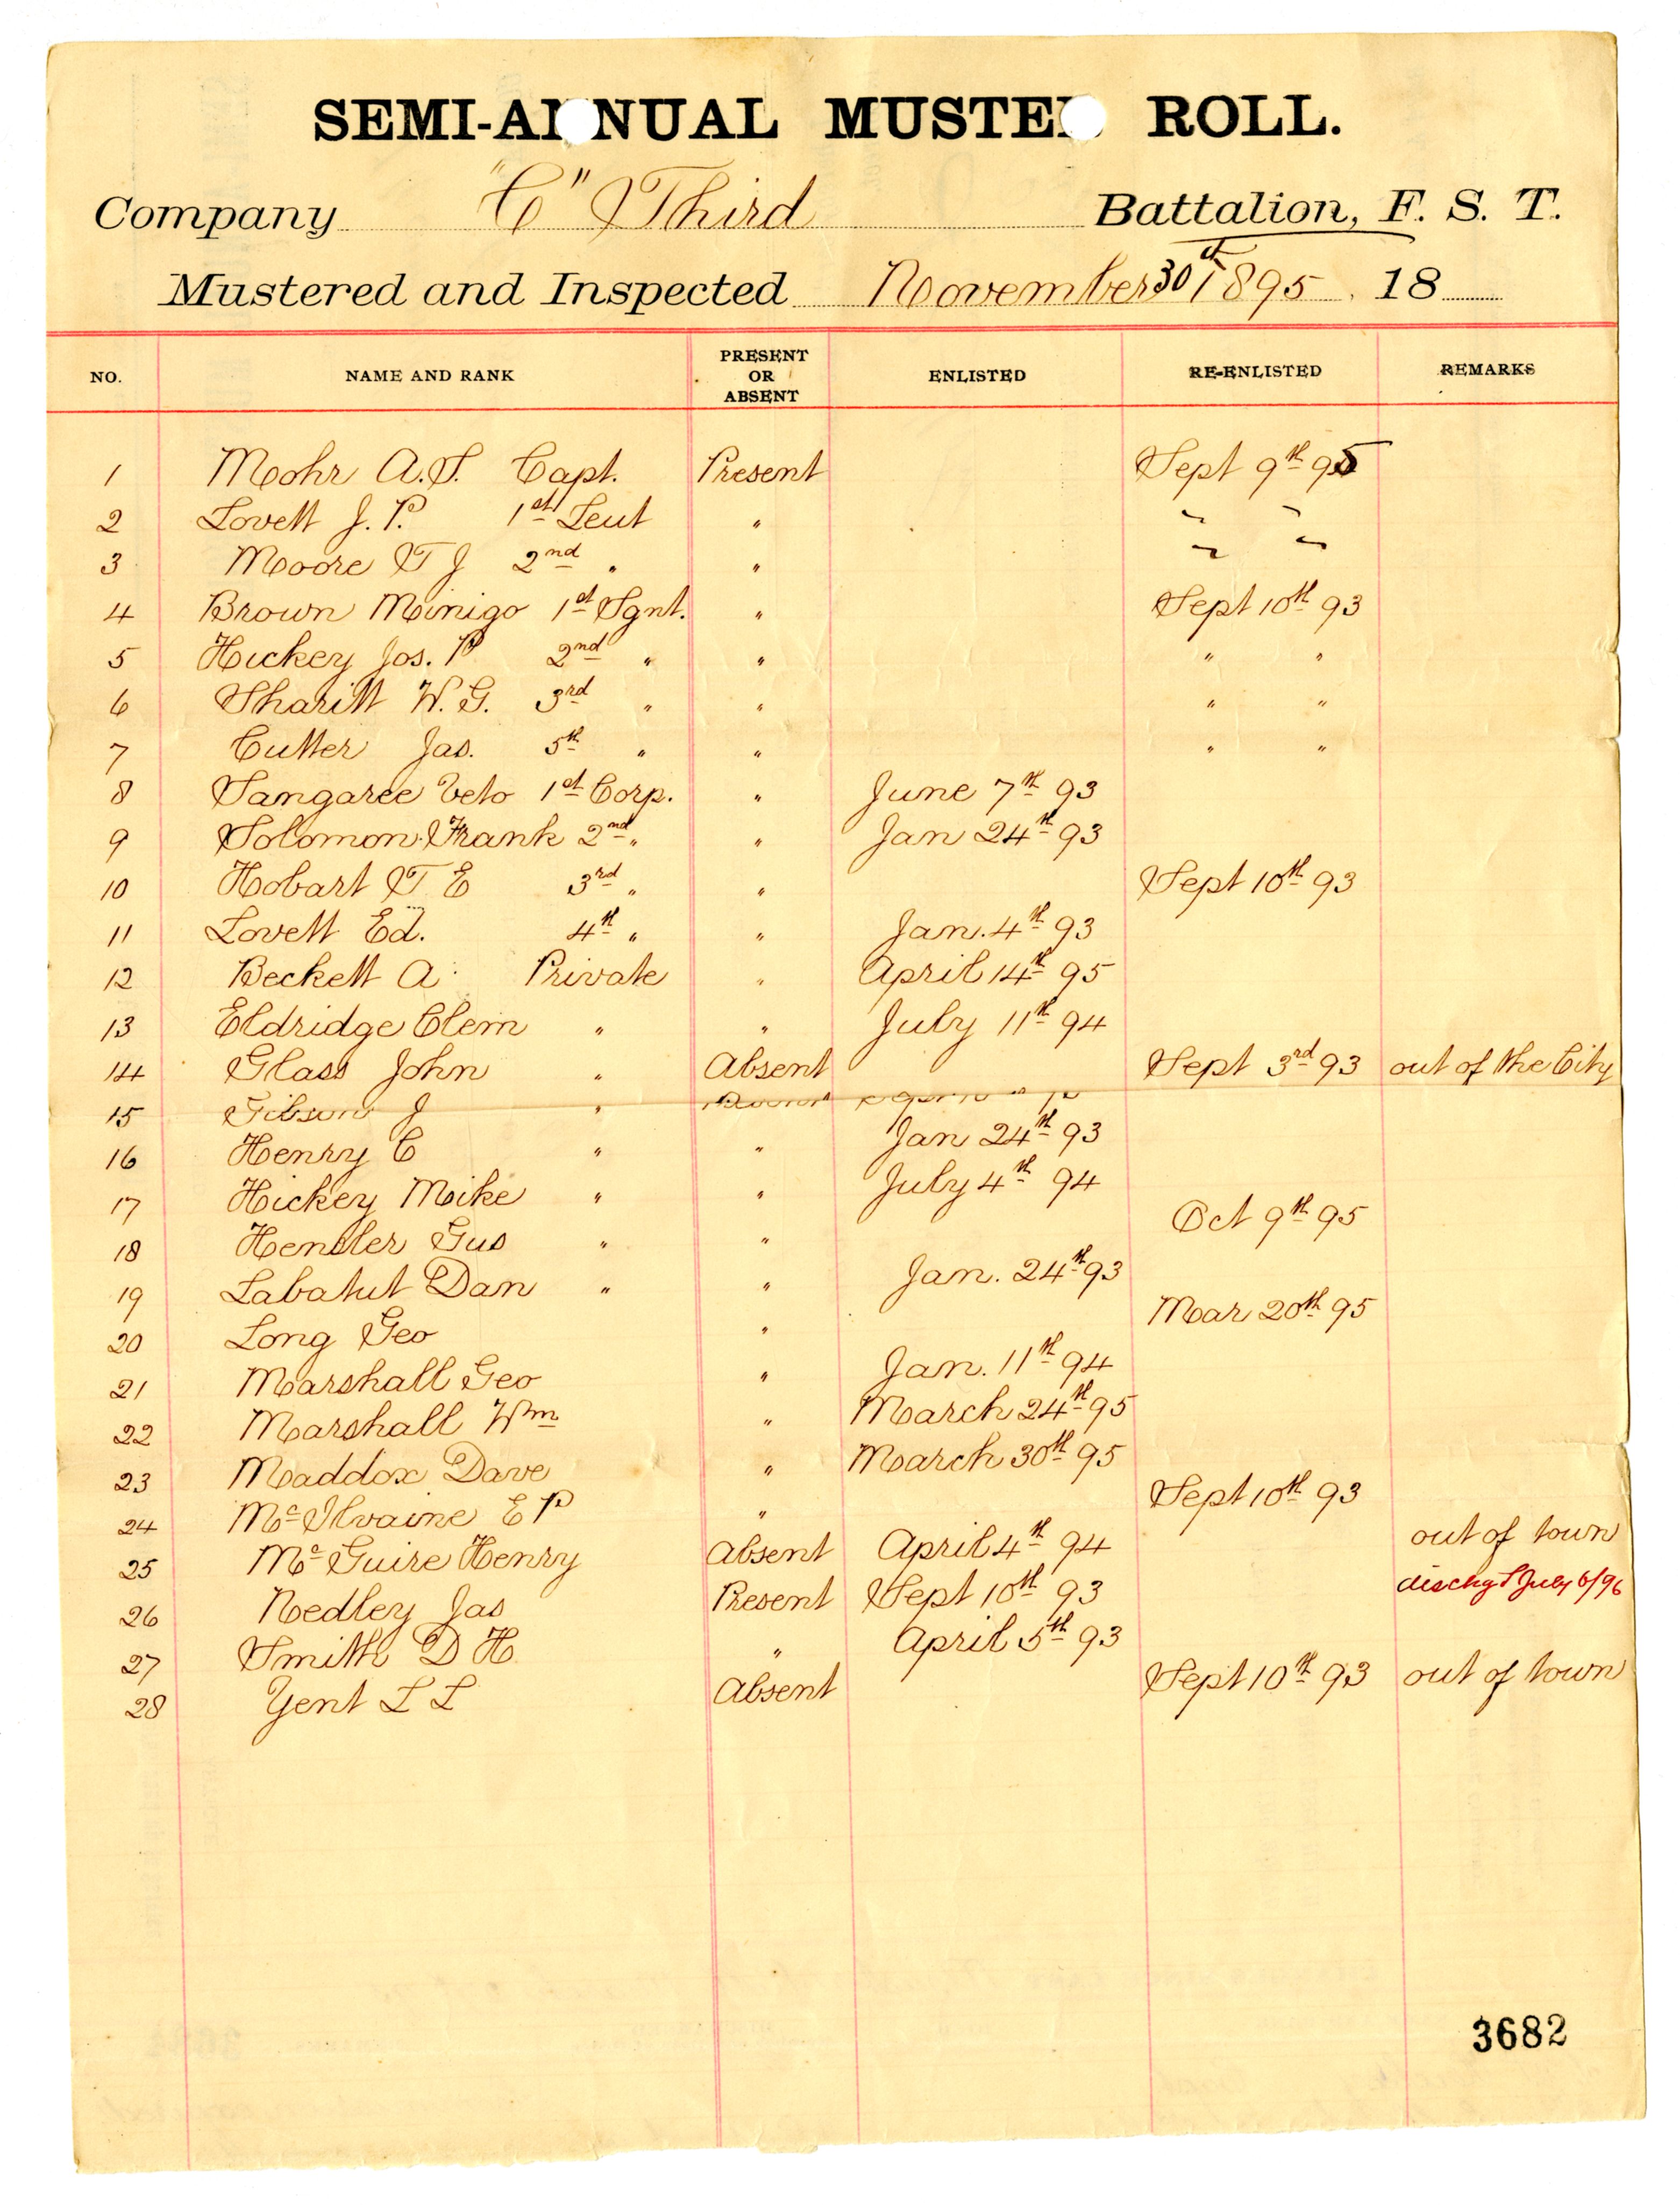 SEMI-ANNUAL MUSTER ROLL.
Company "C" Third Battalion, F. S. T.
Mustered and Inspected November 30th 1895, 18
NO. NAME AND RANK PRESENT OR ABSENT ENLISTED RE-ENLISTED REMARKS
1 Mohr A.S. Capt. Present Sept 9th 95
2 Lovett J. P. 1st Leut " " "
3 Moore T J 2nd " " " "
4 Brown Minigo 1st Sgnt. " Sept 10th 93
5 Hickey Jos. P 2nd " " " "
6 Sharitt W. G. 3rd " " " "
7 Cutter Jas. 5th " " " "
8 Sangaree Veto 1st Corp. " June 7th 93
9 Solomon Frank 2nd " " Jan 24th 93
10 Hobart T E 3rd " " Sept 10th 93
11 Lovett Ed. 4th " " Jan. 4th 93
12 Beckett A Private " April 14th 95
13 Eldridge Clem " " July 11th 94
14 Glass John " Absent Sept 3rd 93 out of the City
15 Gibson J "
16 Henry C " " Jan 24th 93
17 Hickey Mike " " July 4th 94
18 Hensler Gus " " Oct 9th 95
19 Labatut Dan " " Jan. 24th 93
20 Long Geo " Mar 20th 95
21 Marshall Geo " Jan. 11th 94
22 Marshall Wm " March 24th 95
23 Maddox Dave " March 30th 95
24 McIlvaine E P " Sept 10th 93
25 McGuire Henry Absent April 4th 94 out of town
26 Nedley Jas Present Sept 10th 93 dischgd July 6/96
27 Smith D H " April 5th 93
28 Yent L L Absent Sept 10th 93 out of town
3682